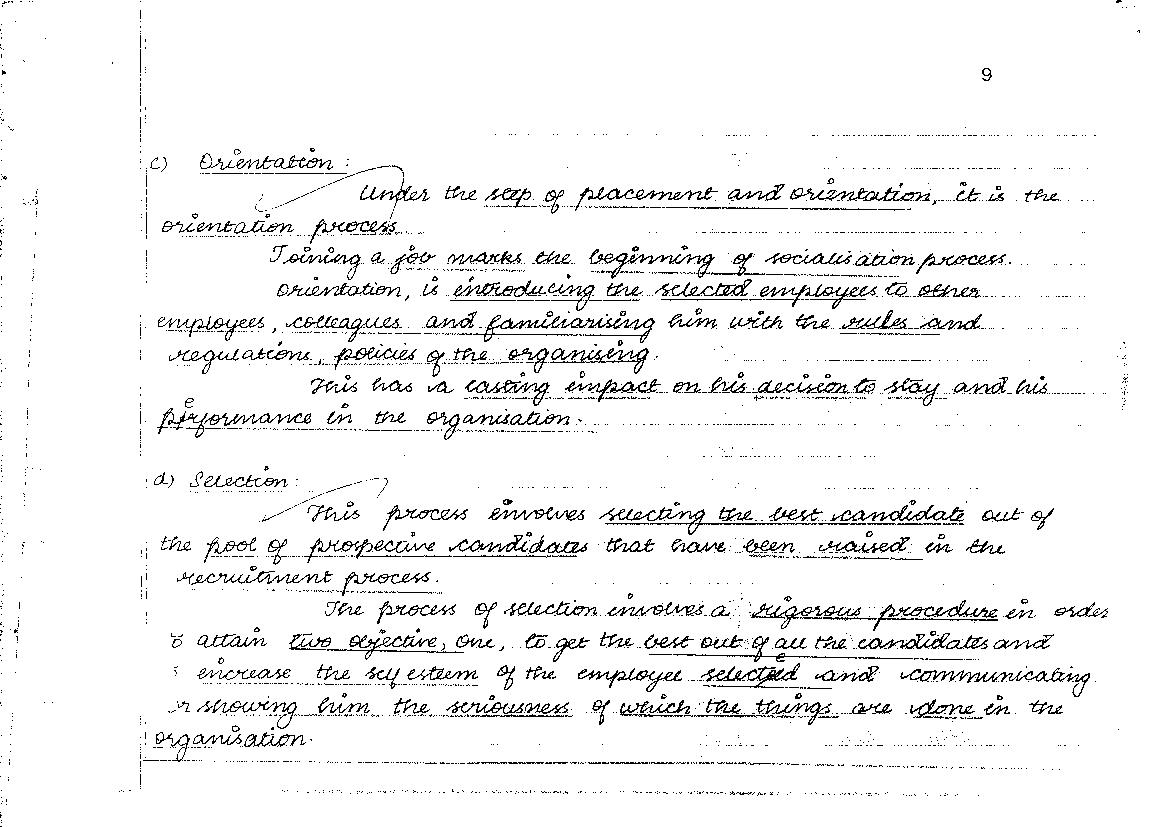 9
c) Orientation :
Under the step of placement and orientation, it is the
orientation process.
Joining a job marks the beginning of socialisation process.
Orientation, is introducing the selected employees to other
employees, colleagues and familiarising him with the rules and
regulations, policies of the organising.
This has a lasting impact on his decision to stay and his
performance in the organisation.
d) Selection :
This process involves selecting the best candidate out of
the pool of prospective candidates that have been raised in the
recruitment process.
The process of selection involves a rigorous procedure in order
to attain two objective, one, to get the best out of all the candidates and
increase the self esteem of the employee selected and communicating
or showing him the seriousness of which the things are done in the
organisation.